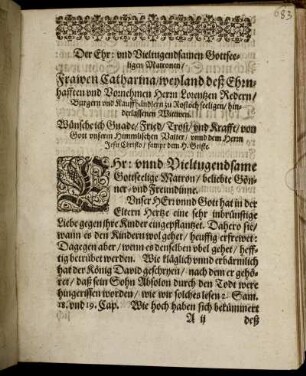 683
Der Ehr: vnd Vieltugendsamen Gottsee-
ligen Matronen/
Frawen Catharina/weyland deß Ehrn-
hafften vnd Vornehmen Herrn Lorentzen Redern/
Bürgern vnd Kauffhändlern zu Rostoch seeligen/ hin-
derlassenen Wittwen.
Wünsche ich Gnade/ Fried/ Trost/ vnd Krafft/ von
Gott vnserm Himmlischen Vatter/ vnnd dem Herrn
Jesu Christo/ sampt dem H. Geiste.
Ehr: vnnd Vieltugendsame
Gottselige Matron/ beliebte Gön-
ner- vnd Freundinne.
Vnser HErr vnnd Gott hat in der
Eltern Hertze eine sehr inbrünstige
Liebe gegen jhre Kinder eingepflantzet. Dahero sie/
wann es den Kindern wol gehet/ heuffig erfrewet:
Dagegen aber/ wenn es denselben vbel gehet/ heff-
tig betrübet werden. Wie kläglich vnnd erbärmlich
hat der König David geschryen/ nach dem er gehö-
ret/ daß sein Sohn Absolon durch den Todt were
hingerissen worden/ wie wir solches lesen 2. Sam.
18. vnd 19. Cap. Wie hoch haben sich bekümmert
A ij deß